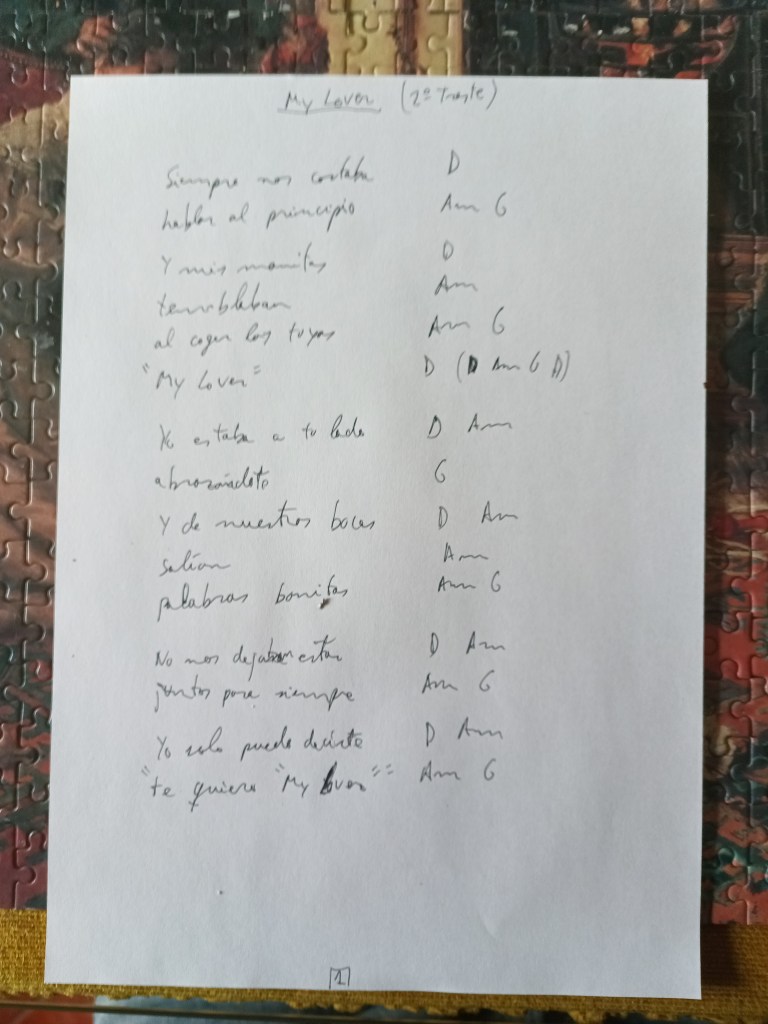 My Lover (2º Traste)
Siempre nos costaba D
hablar al principio Am G
Y mis manitas D
temblaban Am
al coger las tuyas Am G
"My Lover" D (D Am G D)
Yo estaba a tu lado D Am
abrazándote G
Y de nuestras bocas D Am
salían Am
palabras bonitas Am G
No nos dejaban estar D Am
juntos para siempre Am G
Yo solo puedo decirte D Am
"te quiero "My Lover"" Am G
1